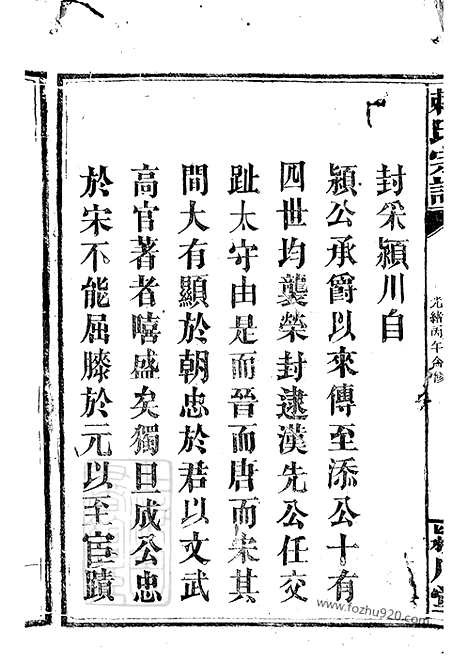 封采潁川自
潁公承爵以來傳至添公十有
四世均襲榮封逮漢先公任交
趾太守由是而晉而唐而宋其
間大有顯於朝忠於君以文武
高官著者嘻盛矣獨旦成公忠
於宋不能屈膝於元以至宦蹟
賴氏宗譜
光緒丙午合修
川堂
www.fozhu920.com